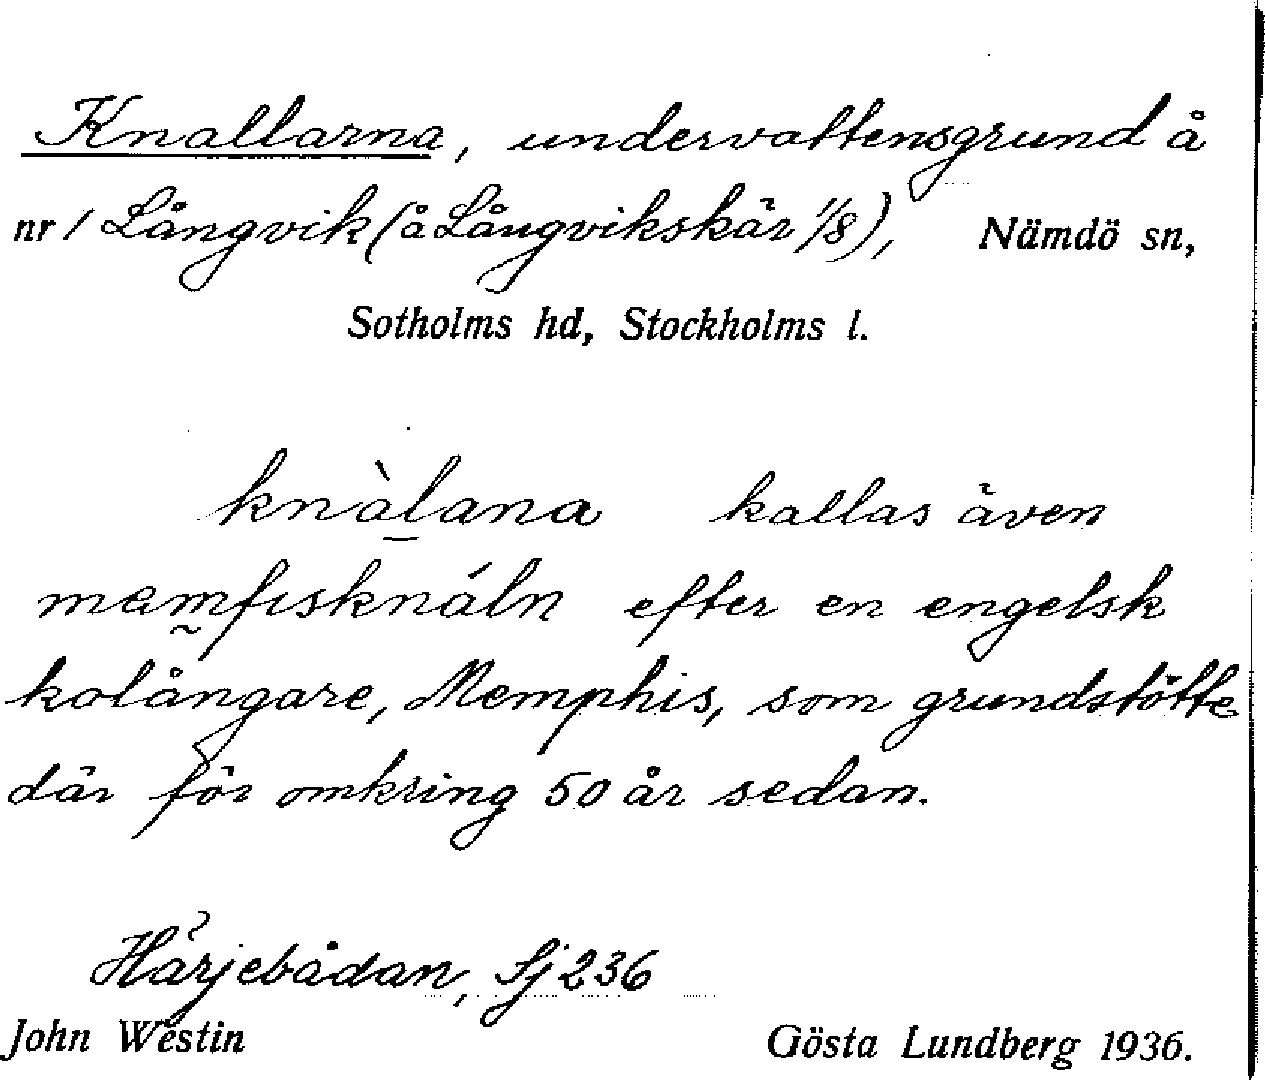 Knallarna, undervattensgrund å
nr 1 Långvik (å Långvikskär 1/8), Nämdö sn,
Sotholms hd, Stockholms l.
knàlana kallas även
memfisknáln efter en engelsk
kolångare, Memphis, som grundstötte
där för omkring 50 år sedan.
Härjebådan, Sj 236
John Westin Gösta Lundberg 1936.